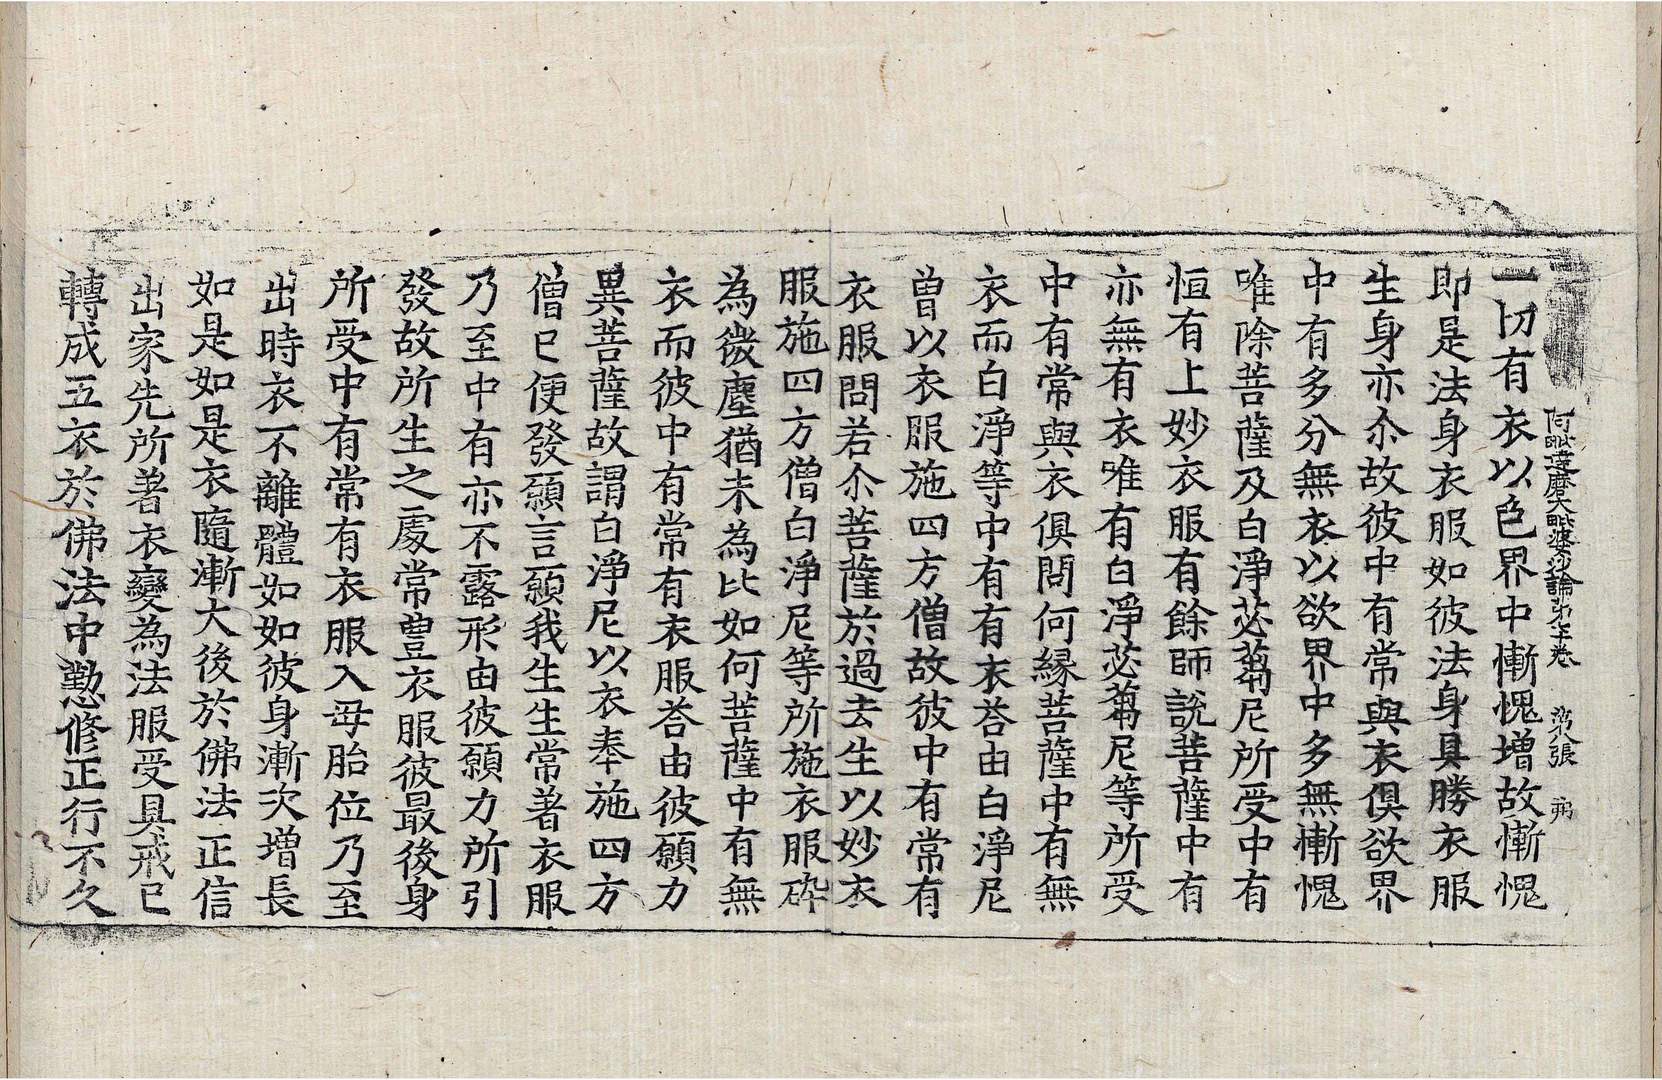 阿毗達磨大毗婆沙論第七十卷 張 弼
一切有衣以色界中慚愧增故慚愧
即是法身衣服如彼法身具勝衣服
生身亦尒故彼中有常與衣俱欲界
中有多分無衣以欲界中多無慚愧
唯除菩薩及白淨苾蒭尼所受中有
恒有上妙衣服有餘師說菩薩中有
亦無有衣唯有白淨苾蒭尼等所受
中有常與衣俱問何緣菩薩中有無
衣而白淨等中有有衣荅由白淨尼
曽以衣服施四方僧故彼中有常有
衣服問若尒菩薩於過去生以妙衣
服施四方僧白淨尼等所施衣服碎
為微塵猶未為比如何菩薩中有無
衣而彼中有常有衣服荅由彼願力
異菩薩故謂白淨尼以衣奉施四方
僧已便發願言願我生生常著衣服
乃至中有亦不露形由彼願力所引
發故所生之處常豊衣服彼最後身
所受中有常有衣服入母胎位乃至
出時衣不離體如如彼身漸次增長
如是如是衣隨漸大後於佛法正信
出家先所著衣變為法服受具戒已
轉成五衣於佛法中勤修正行不久